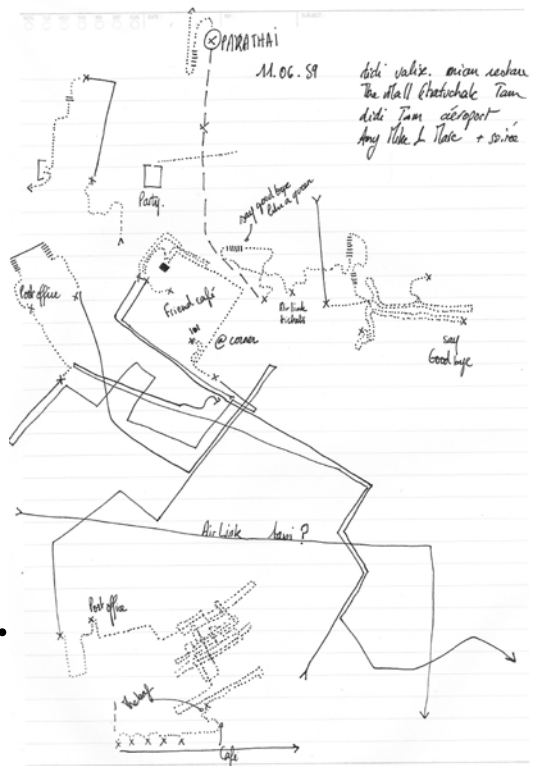 PARATHAI
11.06.59
didi valise.
The Mall Chatuchak Tam
didi Tam aéroport
Any Mike & Marc + soirée
Party.
say good bye
like a queen
Post office
Friend café
Air link
tickets
@ corner
say
Good bye
Air Link taxi ?
Post office
Café